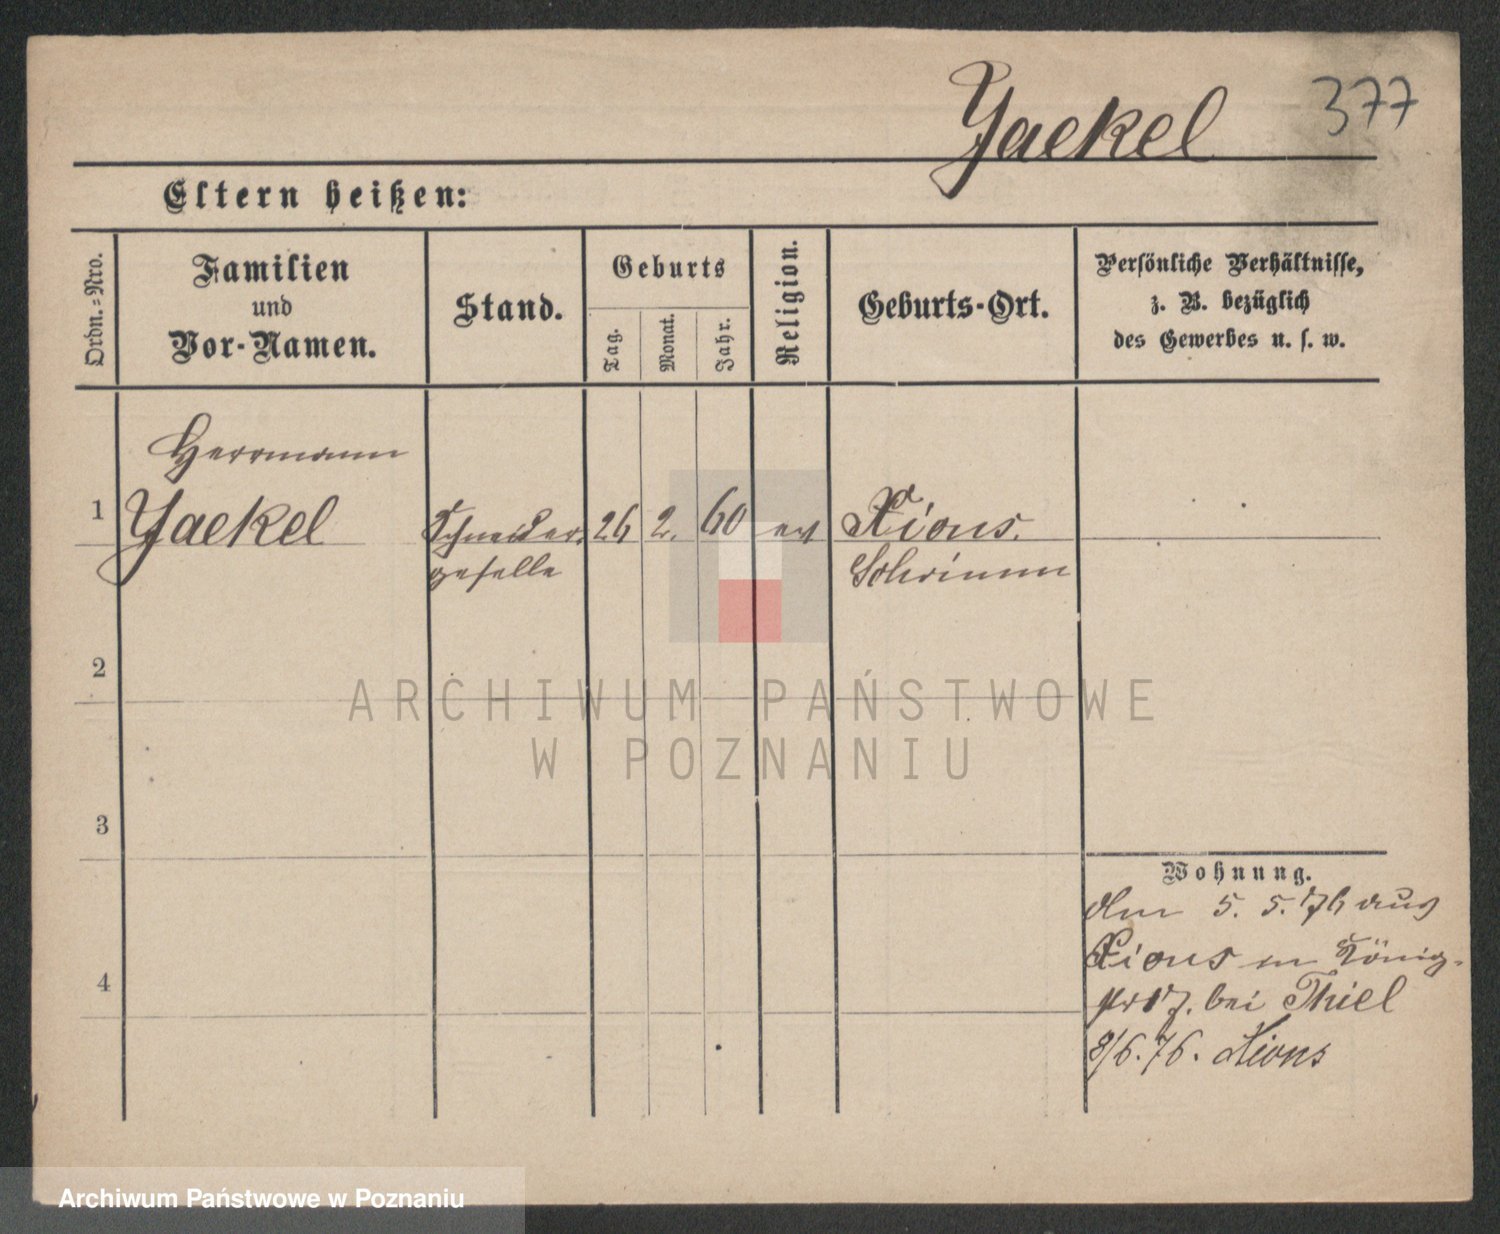 Jaekel 377
Eltern heißen:
Ordn.-Nro.
Familien
und
Vor-Namen.
Stand.
Geburts
Tag.
Monat.
Jahr.
Religion.
Geburts-Ort.
Persönliche Verhältnisse,
z. B. bezüglich
des Gewerbes u. s. w.
Herrmann
1 Jaekel Schneider- 26 2. 60 ev Xions.
geselle Schrimm
2
ARCHIWUM PAŃSTWOWE
W POZNANIU
3
Wohnung.
5. 5. 76 aus
4 Xions König-
17. bei Thiel
8/6.76. Xions
Archiwum Państwowe w Poznaniu